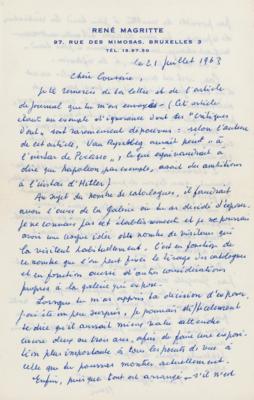 RENÉ MAGRITTE
97, RUE DES MIMOSAS, BRUXELLES 3
TÉL. 15.97.30
le 21 juillet 1963
Chère
Je te remercie de ta lettre et de l'article
de journal que tu m'as envoyés (Cet article
étant un exemple d'ignorance dont les "critiques
d'art" sont rarement dépourvus : selon l'auteur
de cet article, Van avait peint "à
l'instar de Picasso", ce qui équivaudrait à
dire que Napoléon par exemple, avait des ambitions
à l'instar d'Hitler)
Au sujet du nombre de catalogues, il faudrait
avoir l'avis de la Galerie où tu as décidé d'exposer.
Je ne connais pas cet établissement et je ne pourrais
avoir une idée du nombre de visiteurs qui
la visitent habituellement. C'est en fonction de
ce nombre que l'on peut fixer le tirage des catalogues
et en fonction encore d'autres considérations
propres à la galerie qui expose.
Lorsque tu m'as appris ta décision d'exposer,
j'ai été un peu surpris, je pouvais difficilement
te dire qu'il aurait mieux valu attendre
encore deux ou trois ans, afin de faire une exposi-
tion plus importante à tous les points de vue à
celle que tu pourras montrer actuellement.
Enfin, puisque tout est arrangé, s'il n'est